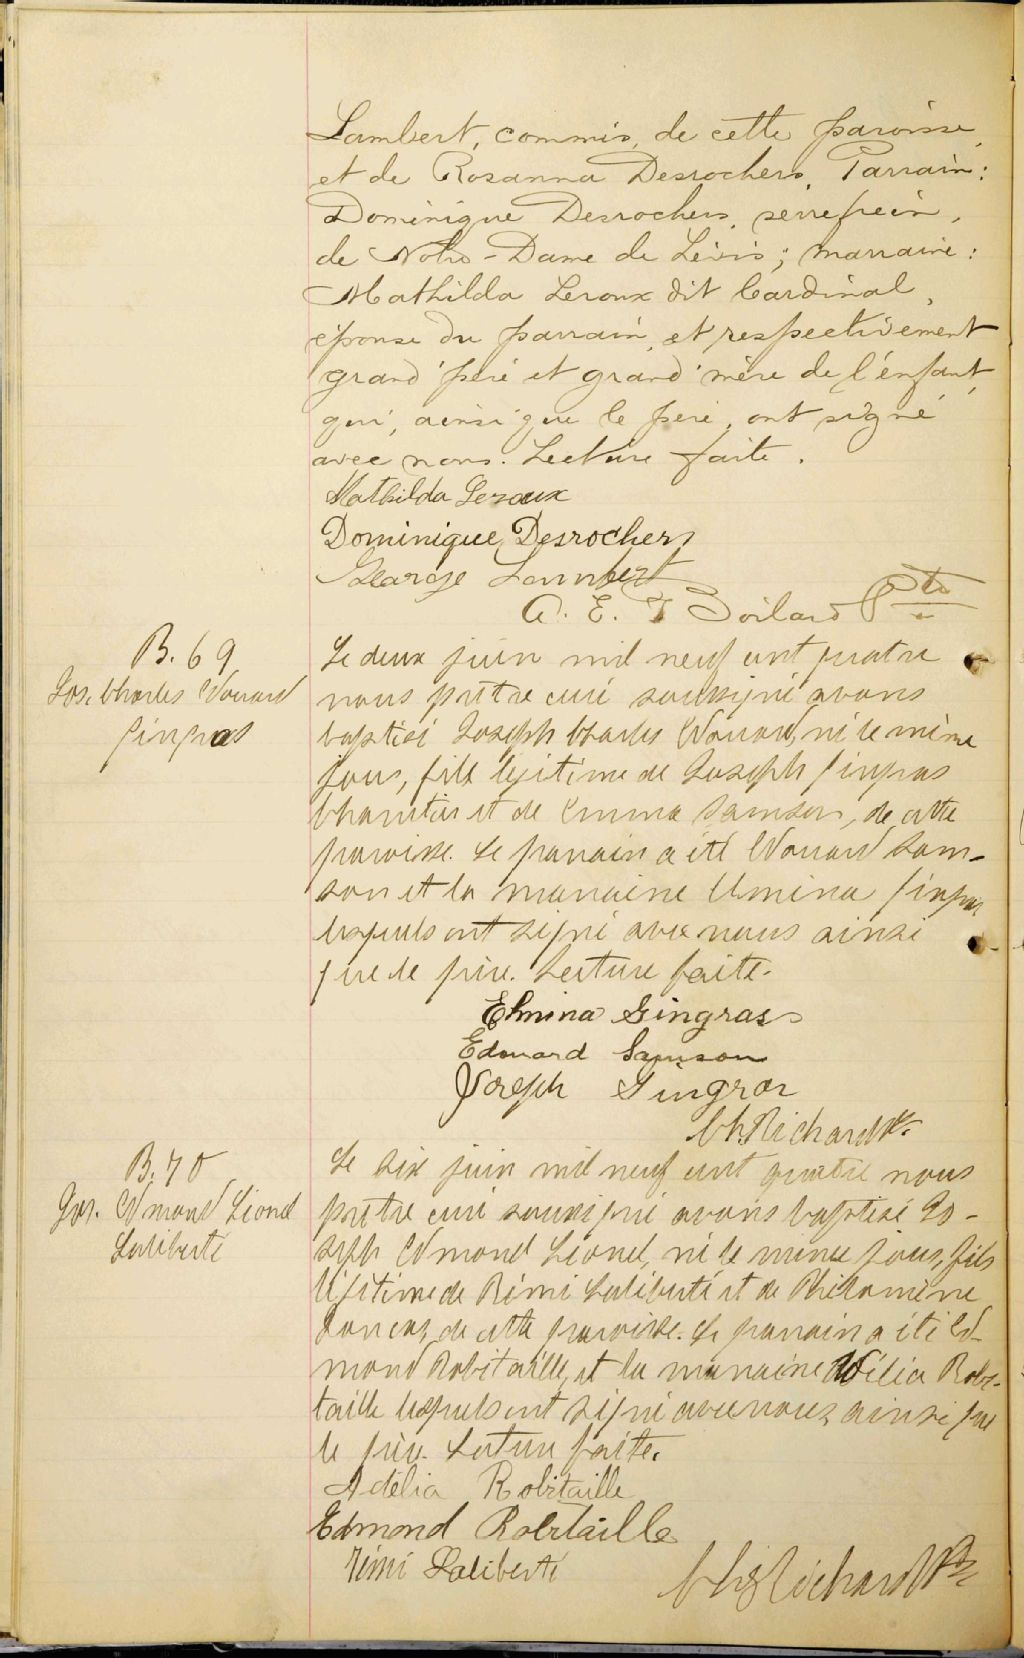 Lambert, commis, de cette paroisse,
et de Rosanna Desrochers. Parrain:
Dominique Desrochers, serrefrein,
de Notre-Dame de Lévis; marraine:
Mathilda Leroux dit Cardinal,
épouse du parrain, et respectivement
grand'père et grand'mère de l'enfant,
qui, ainsi que le père, ont signé
avec nous. Lecture faite.
Mathilda Leroux
Dominique Desrochers
George Lambert
A. E. T Boilard Ptre
B. 69
Jos. Charles Edouard
Gingras
Le deux juin mil neuf cent quatre
nous prêtre curé soussigné avons
baptisé Joseph Charles Edouard, né le même
jour, fils légitime de Joseph Gingras
charretier et de Emma Samson, de cette
paroisse. Le parrain a été Edouard Sam-
son et la marraine Elmina Gingras
lesquels ont signé avec nous ainsi
que le père. Lecture faite.
Elmina Gingras
Edouard Samson
Joseph Gingras
Ch. Richard Ptr.
B. 70
Jos. Edmond Lionel
Laliberté
Le six juin mil neuf cent quatre nous
prêtre curé soussigné avons baptisé Jo-
seph Edmond Lionel, né le même jour, fils
légitime de Rémi Laliberté et de Philomène
de cette paroisse. Le parrain a été Ed-
mond Robitaille, et la marraine Robi-
taille lesquels ont signé avec nous ainsi que
le père. Lecture faite.
Adélia Robitaille
Edmond Robitaille
Rémi Laliberté
Chs Richard Ptr